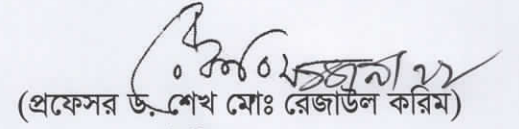 (প্রফেসর ড. শেখ মোঃ রেজাউল করিম)